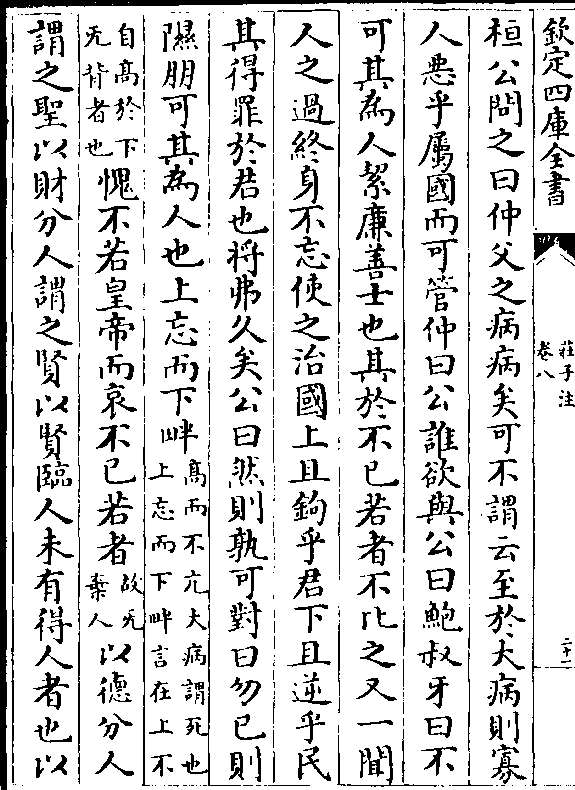 欽定四庫全書
莊子注
卷八
二十一
桓公問之曰仲父之病病矣可不謂云至於大病則寡
人惡乎屬國而可管仲曰公誰欲與公曰鮑叔牙曰不
可其為人絜廉善士也其於不已若者不比之又一聞
人之過終身不忘使之治國上且鉤乎君下且逆乎民
其得罪於君也將弗久矣公曰然則孰可對曰勿已則
隰朋可其為人也上忘而下畔高而不亢大病謂死也上忘而下畔言在上不
自高於下无背者也愧不若皇帝而哀不已若者故无棄人以德分人
謂之聖以財分人謂之賢以賢臨人未有得人者也以